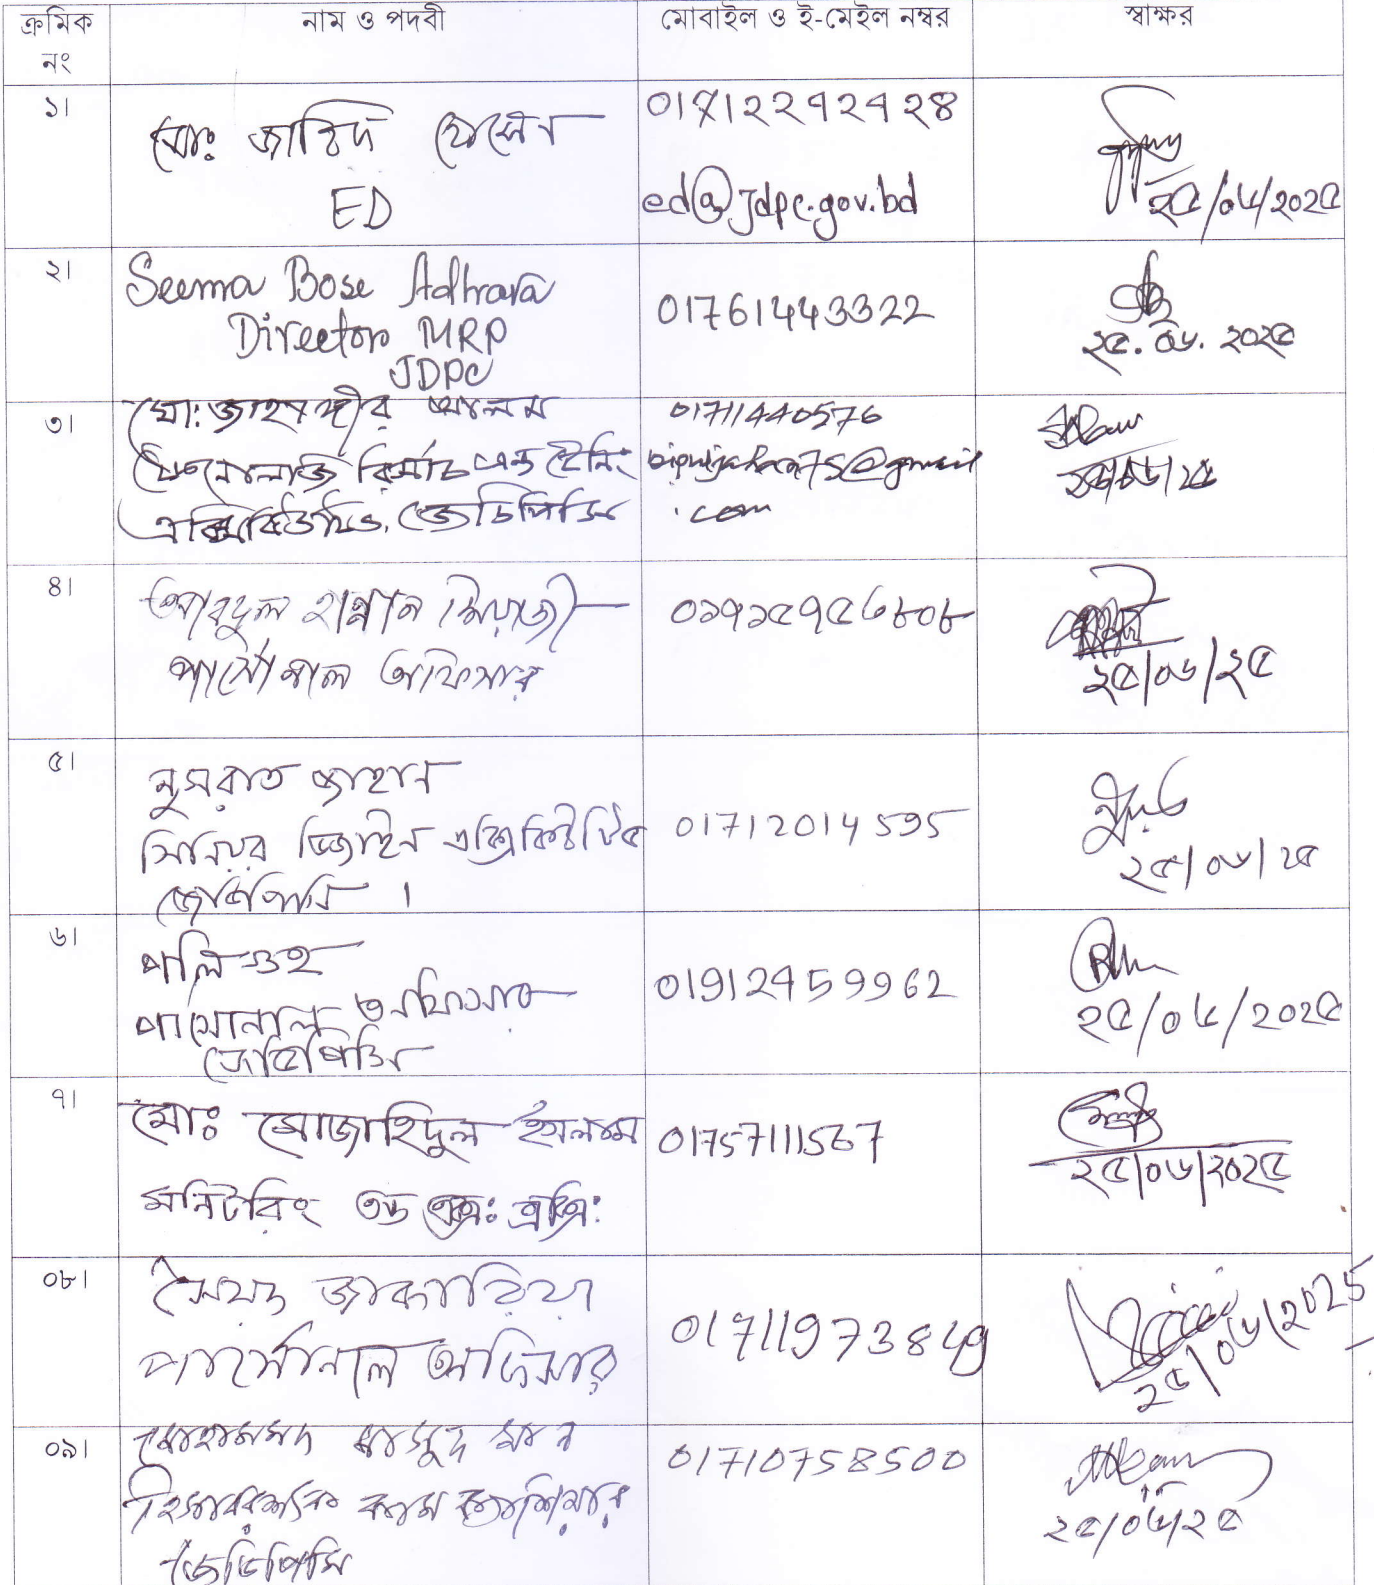 ক্রমিক নং
নাম ও পদবী
মোবাইল ও ই-মেইল নম্বর
স্বাক্ষর
১।
মোঃ জাহিদ হোসেন
ED
ed@jdpc.gov.bd
২৫/০৬/২০২৫
২।
Seema Bose Adhara
Director MRP
JDPC
01761443322
২৫.০৬.২০২৫
৩।
মো: জাহাঙ্গীর আলম
টেকনোলজি রিসার্চ এন্ড ট্রেনিং
এক্সিকিউটিভ, জেডিপিসি
01711440576
@gmail
.com
২৫/০৬/২৫
৪।
আবদুল হান্নান মিয়াজী
পার্সোনাল অফিসার
০১৭১৫৭৫৬৮০৮
২৫/০৬/২৫
৫।
নুসরাত জাহান
সিনিয়র ডিজাইন এক্সিকিউটিভ
জেডিপিসি ।
01712014595
২৫/০৬/২৫
৬।
পলি গুহ
পার্সোনাল অফিসার
জেডিপিসি
২৫/০৬/২০২৫
৭।
মোঃ মোজাহিদুল ইসলাম
মনিটরিং এন্ড
01757111567
২৫/০৬/২০২৫
০৮।
সৈয়দ জাকারিয়া
পার্সোনাল অফিসার
২৫/০৬/2025
০৯।
মোহাম্মদ মাসুদ খান
হিসাবরক্ষক কাম ক্যাশিয়ার
জেডিপিসি
01710758500
২৫/০৬/২৫